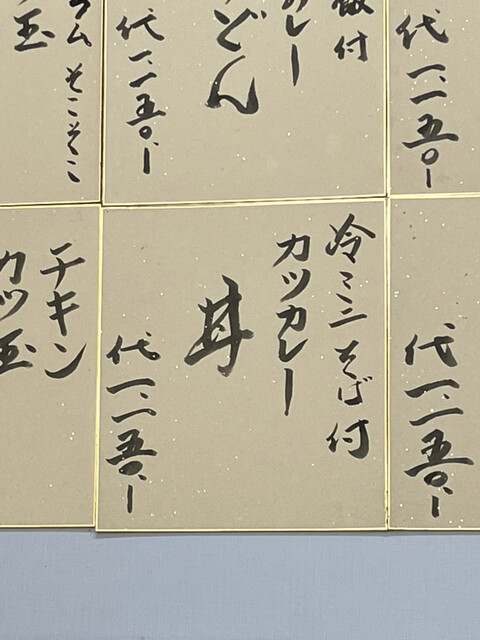 飯付
カレー
どん
代一、一五〇、ー
そこそこ
玉
代一、一五〇、ー
冷ミニそば付
カツカレー
丼
代一、一五〇、ー
チキン
カツ玉
代一、一五〇、ー